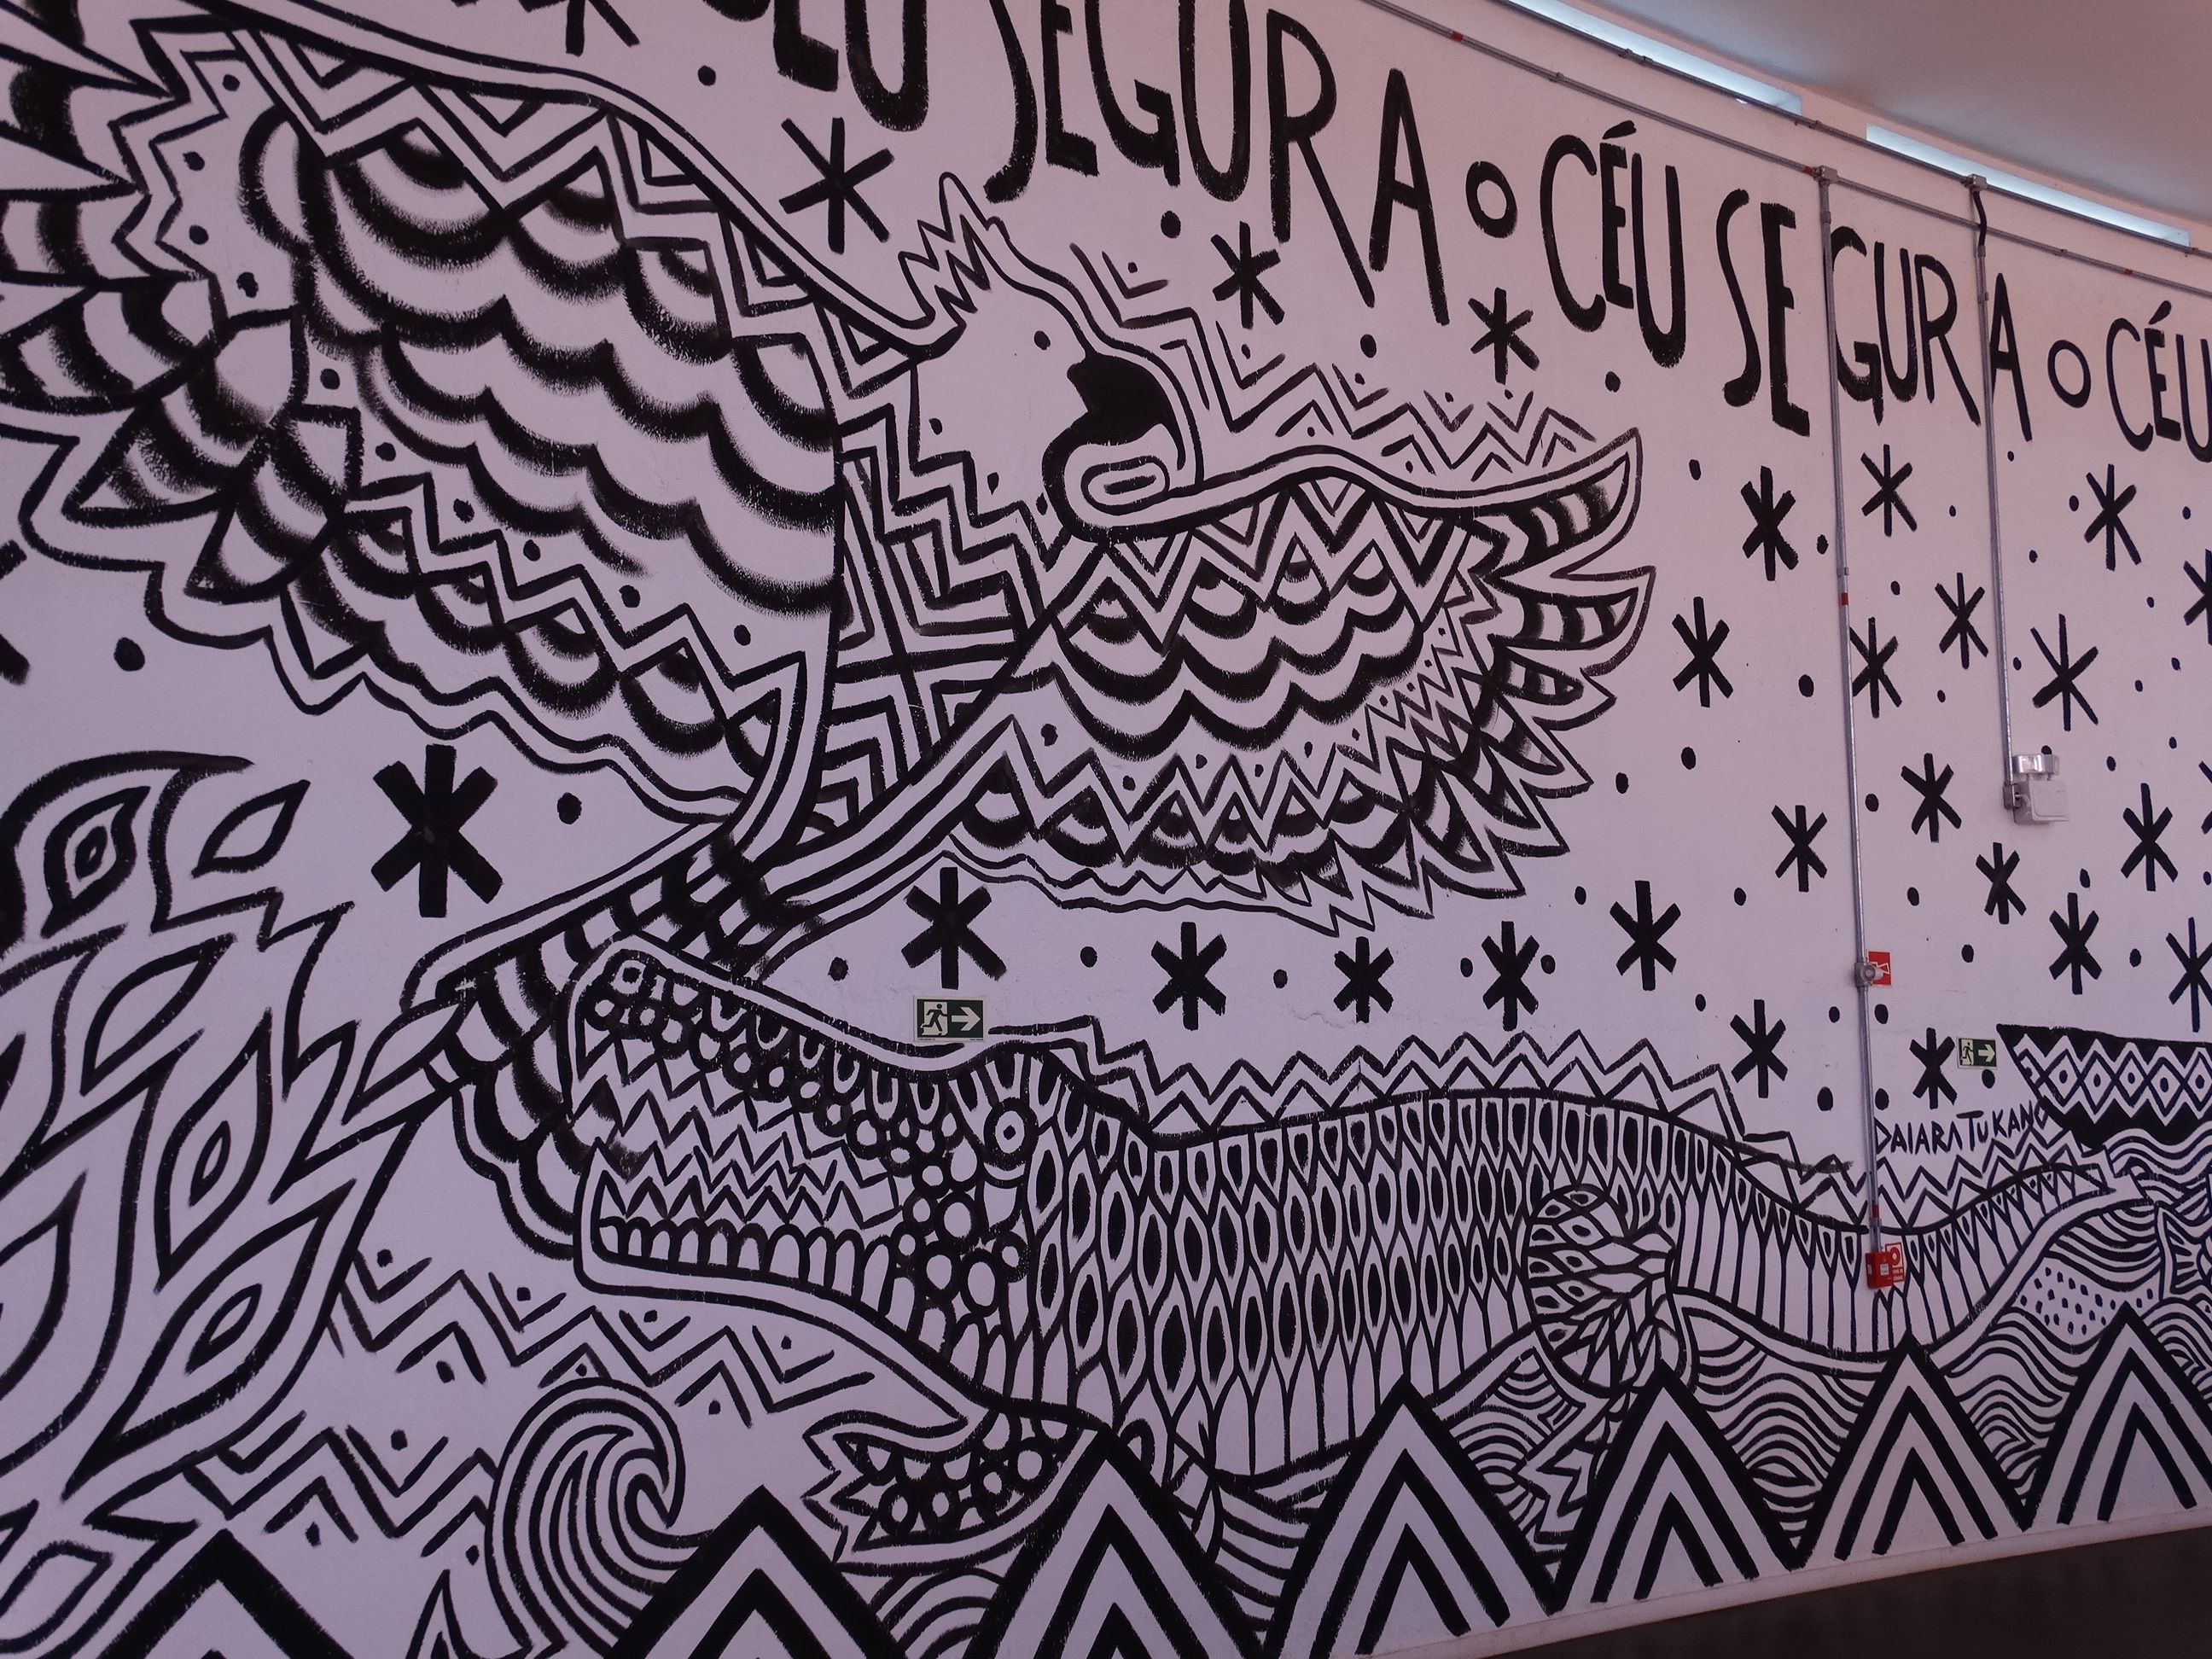 ÉU SEGURA O CÉU SEGURA O CÉU
DAIARA TUKANO